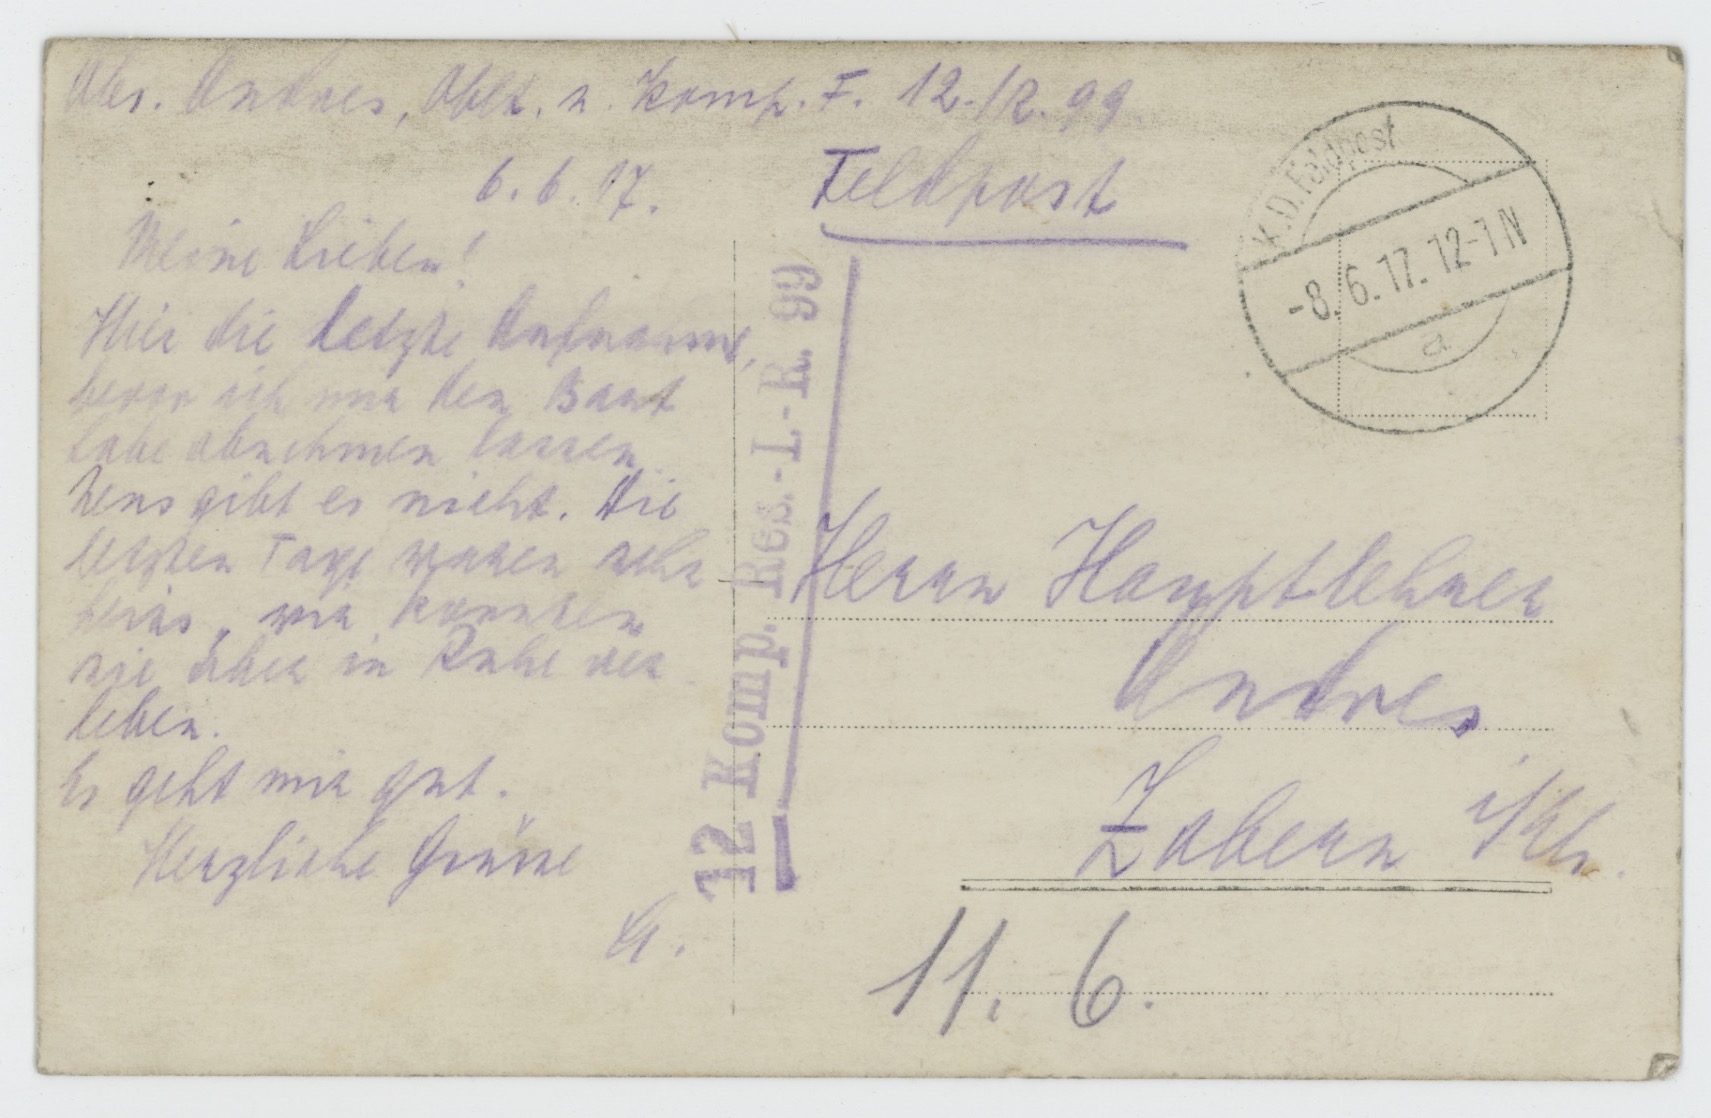 Abs. Andres, Oblt. u. Komp. F. 12./R. 99.
Feldpost
6. 6. 17.
Meine Lieben!
Hier die letzte Aufnahme,
bevor ich mir den Bart
habe abnehmen lassen.
gibt es nicht. Die
letzten Tage waren sehr
heiss, wir konnten
sie aber in Ruhe ver
leben.
Es geht mir gut.
Herzliche Grüsse
K. D. Feldpost
-8. 6. 17. 12-1 N
a
12 Komp. Res.-I.-R. 99
Herrn Hauptlehrer
Andres
Zabern i/Els.
11. 6.